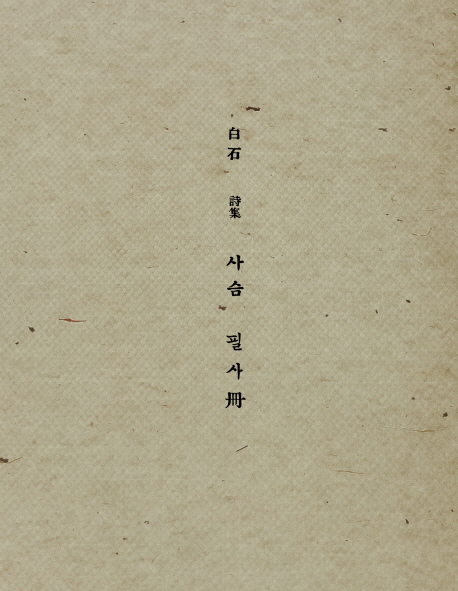 白石
詩集
사슴
필사冊